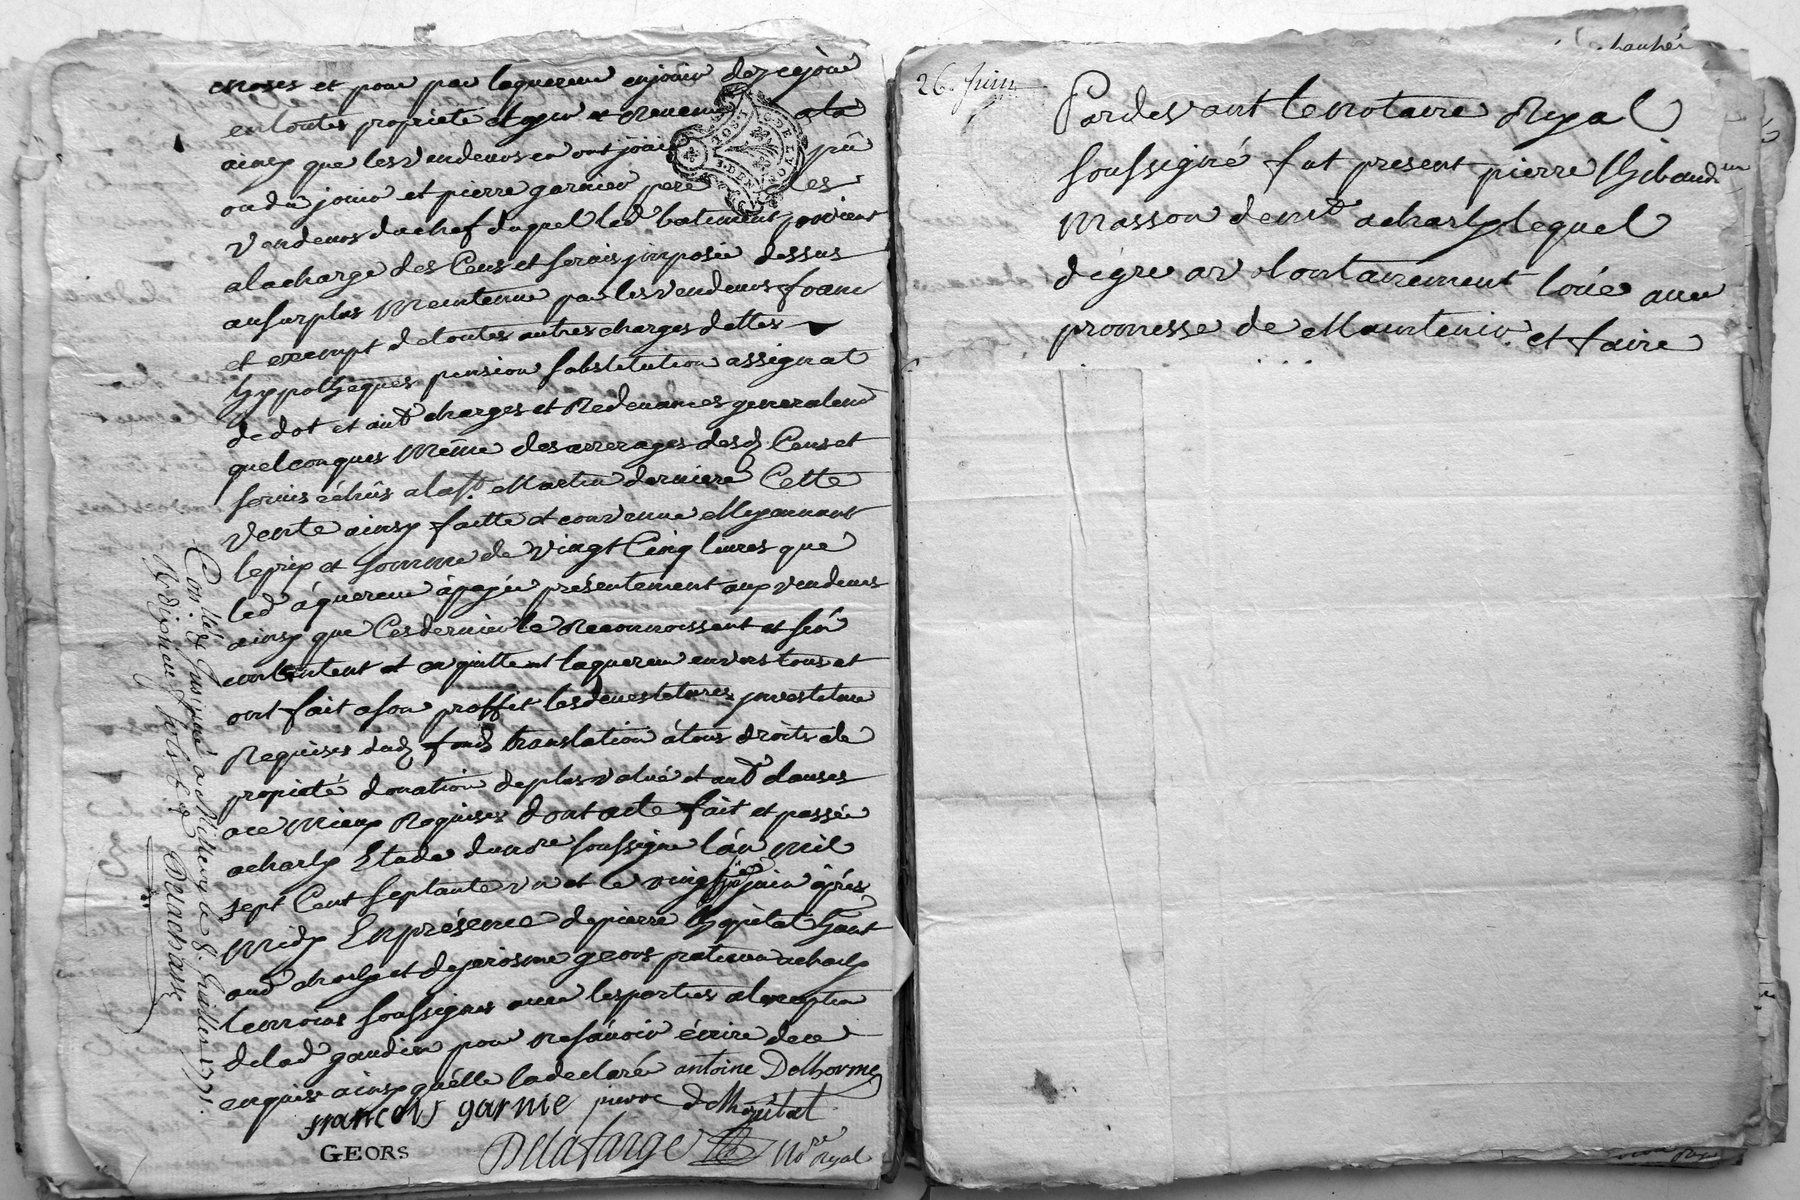 choses et pour par laquereur enjouir dezcejour
entoutes propriete et gain et Revenu ala
ainsy que les vendeurs en ont joui pû
ou du jouir et pierre garnier pere des
vendeurs du chef duquel led batiment provient
alacharge des Cens et servis jmposée dessus
ausurplus Meintenue par les vendeurs franc
et exempt detoutes autres charges dettes
hypotheques pension substitution assignat
de dot et autˢ charges et Redevances generalemᵗ
quelconques Même des arrerages desd. Cens et
servis échûs ala Sᵗ Martin derniere Cette
vente ainsy faitte et convenue Moyennant
le prix et somme de vingt Cinq livres que
led aquereur apayée présentement aux vendeurs
ainsy que Cesdernier le Reconnoissent et sén
contentent et enquittent laquereur envers tous et
ont fait ason proffit lesdevestitures jnvestiture
Requises dud. fond translation átous droits de
propieté donation deplus valué et autˢ clauses
ace Mieux Requises dont acte fait et passée
acharly Etude dunore soussigne lán Mil
sept Cent septante un et le vingt juin áprés
Midy En présence depierre hopital
aud charly et dejerosme geors praticien acharly
temoins soussignés avec les parties alexception
de lad gaudin pour ne sávoir écrire dece
enquise ainsy quélle ladeclaré antoine Delhorme
francois garnie pierre delhôpital
GEORS Delafarge Noʳᵉ Royal
Con.lé & Jnsinué a Millery le 8. Juillet 1771.
Delachasse
26. Juin
Pardevant le notaire Royal
soussigné fut present pierre Thibaudier
Masson demᵗ acharly lequel
degre avolontairement loüé avec
promesse de Maintenir et faire